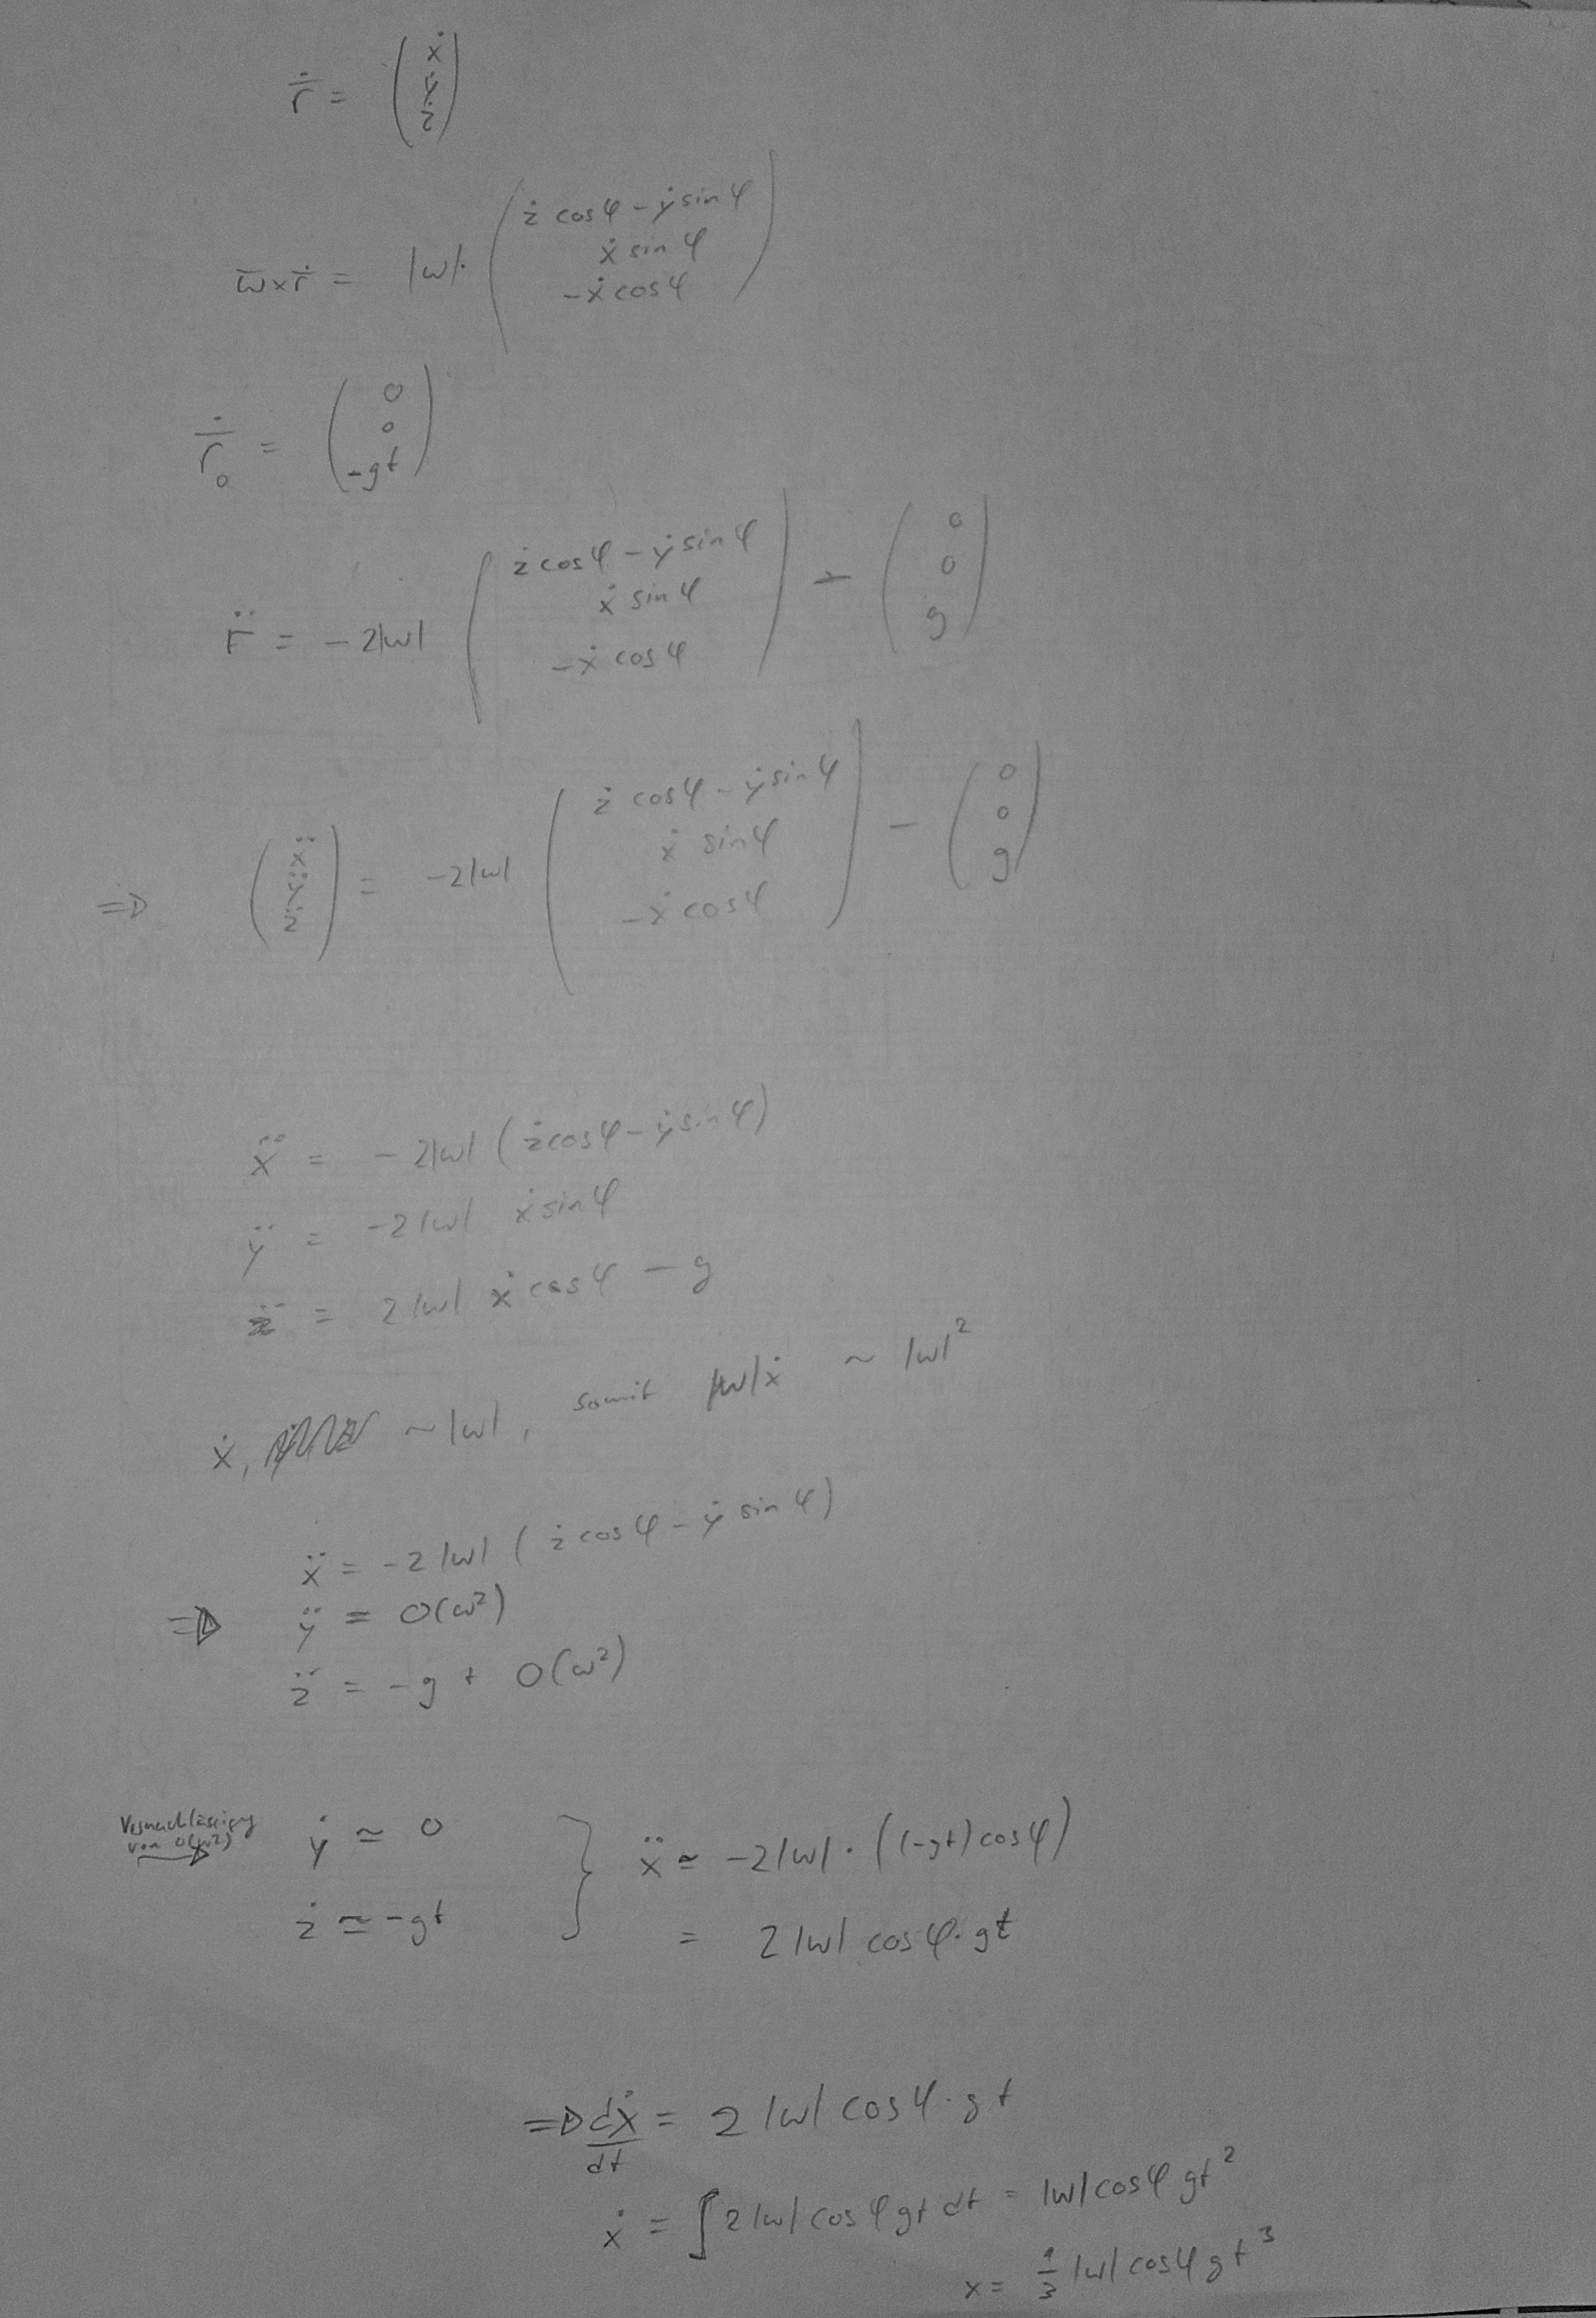 ṙ̄ = (ẋ ẏ ż)
ω̄×ṙ̄ = |ω|· (ż cosφ − ẏ sinφ
ẋ sinφ
−ẋ cosφ)
ṙ̄₀ = (0 0 −gt)
r̈ = −2|ω| (ż cosφ − ẏ sinφ
ẋ sinφ
−ẋ cosφ) − (0 0 g)
⇒ (ẍ ÿ z̈) = −2|ω| (ż cosφ − ẏ sinφ
ẋ sinφ
−ẋ cosφ) − (0 0 g)
ẍ = −2|ω| (ż cosφ − ẏ sinφ)
ÿ = −2|ω| ẋ sinφ
z̈ = 2|ω| ẋ cosφ − g
ẋ, ~|ω|, somit |ω|ẋ ~ |ω|²
ẍ = −2|ω| (ż cosφ − ẏ sinφ)
⇒ ÿ = O(ω²)
z̈ = −g + O(ω²)
Vernachlässigung
von O(ω²)
ẏ ≃ 0 } ẍ ≃ −2|ω|·((−gt)cosφ)
ż ≃ −gt = 2|ω| cosφ·gt
⇒ dẋ/dt = 2|ω| cosφ·gt
ẋ = ∫2|ω| cosφ gt dt = |ω|cosφ gt²
x = 1/3 |ω| cosφ gt³